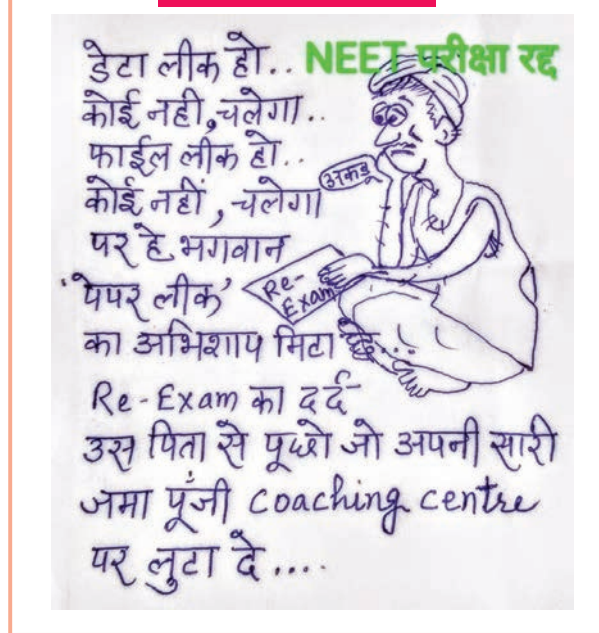 NEET परीक्षा रद्द
डेटा लीक हो..
कोई नही, चलेगा..
फाईल लीक हो..
कोई नहीं, चलेगा
अकडू
पर हे भगवान
'पेपर लीक'
Re-Exam
का अभिशाप मिटा दे...
Re-Exam का दर्द
उस पिता से पूछो जो अपनी सारी
जमा पूँजी coaching centre
पर लुटा दे....